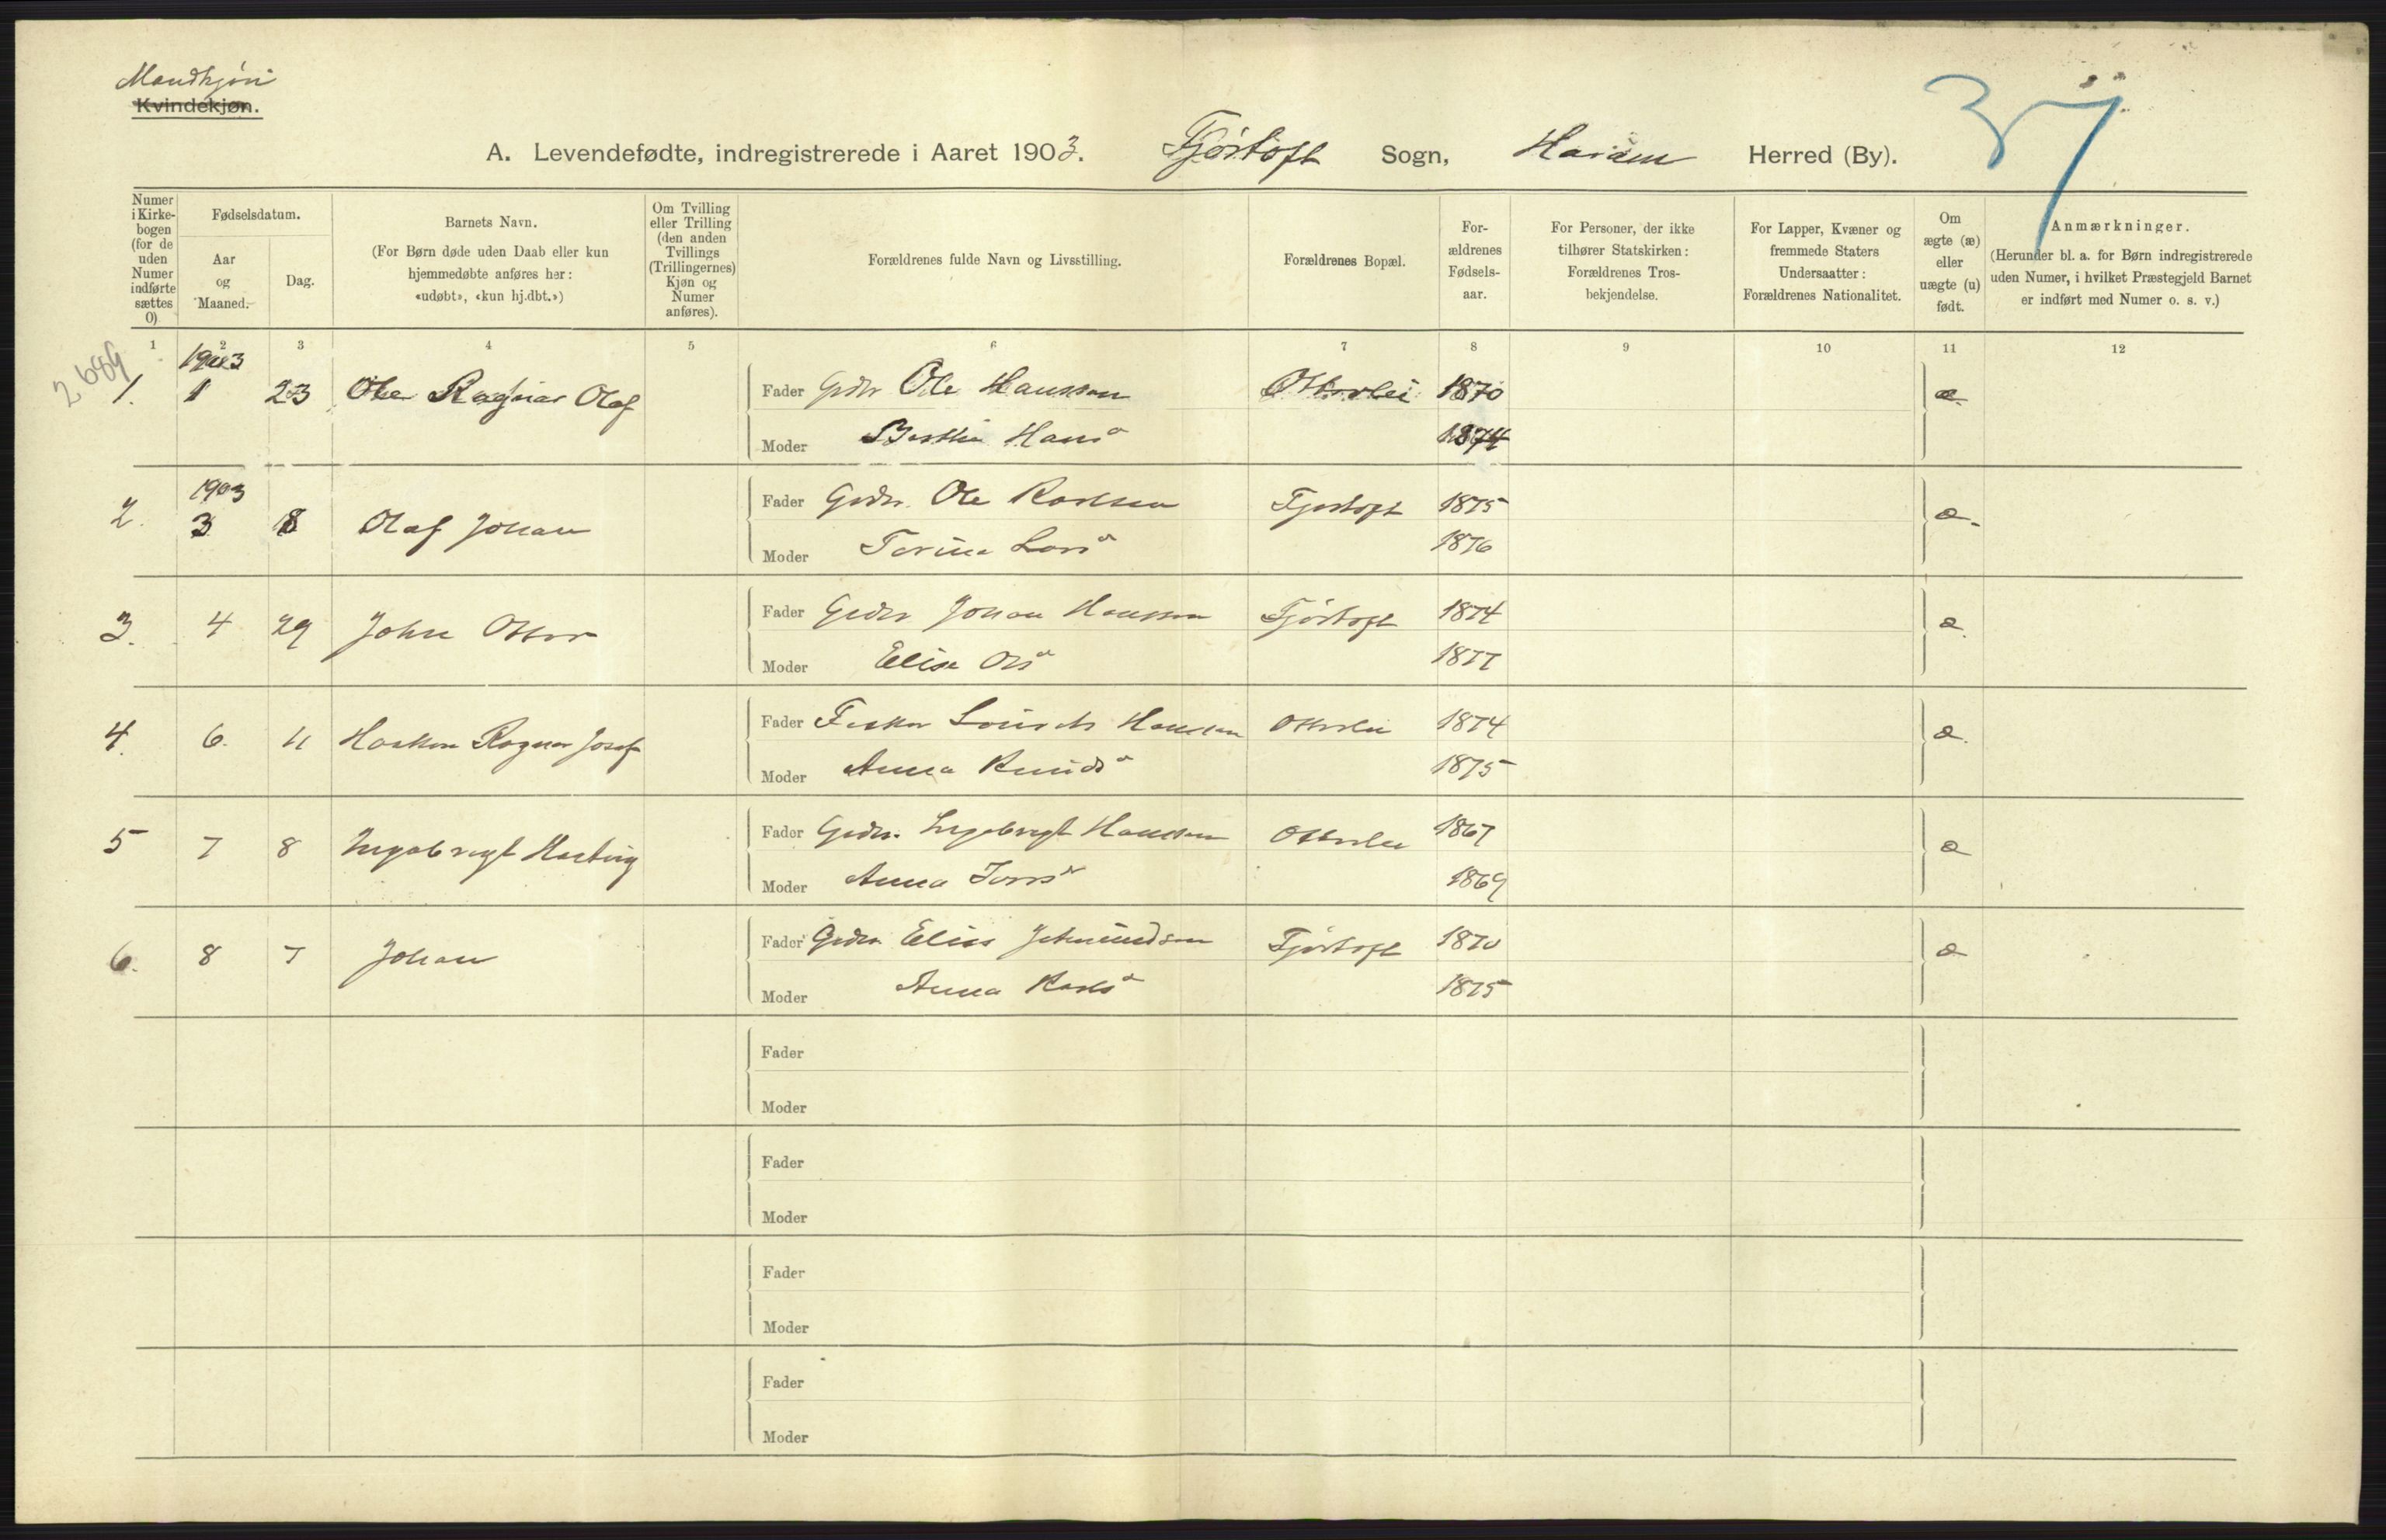 Mandkjøn
Kvindekjøn.
37
A. Levendefødte, indregistrerede i Aaret 1903. Fjørtoft Sogn, Haram Herred (By).
Numer i Kirkebogen (for de uden Numer indførte sættes 0)
Fødselsdatum.
Aar og Maaned.
Dag.
Barnets Navn.
(For Børn døde uden Daab eller kun hjemmedøbte anføres her: «udøbt», «kun hj.dbt.»)
Om Tvilling eller Trilling (den anden Tvillings (Trillingernes) Kjøn og Numer anføres).
Forældrenes fulde Navn og Livsstilling.
Forældrenes Bopæl.
For-ældrenes Fødsels-aar.
For Personer, der ikke tilhører Statskirken: Forældrenes Tros-bekjendelse.
For Lapper, Kvæner og fremmede Staters Undersaatter: Forældrenes Nationalitet.
Om ægte (æ) eller uægte (u) født.
Anmærkninger.
(Herunder bl. a. for Børn indregistrerede uden Numer, i hvilket Præstegjeld Barnet er indført med Numer o. s. v.)
1 2 3 4 5 6 7 8 9 10 11 12
2689
1903
1. 1 23 Ragnar Olaf Fader Gdbr Ole Hanssen Otterlei 1870 æ.
Moder Hansd 1874
1903
2. 3 8 Olaf Johan Fader Gdbr. Ole Karlsen Fjørtoft 1875 æ.
Moder Larsd 1876
3. 4 29 Johan Otter Fader Gdbr Johan Hanssen Fjørtoft 1874 æ.
Moder Elise Olsd 1877
4. 6. 11 Haakon Ragnar Josef Fader Fisker Hanssen Otterlei 1874 æ.
Moder Anna Knudsd 1875
5 7 8 Ingebrigt Fader Gdbr. Ingebrigt Hanssen Otterlei 1867 æ
Moder Anna 1869
6. 8 7 Johan Fader Gdbr. Elias Fjørtoft 1870 æ
Moder Anna Karlsd 1875
Fader
Moder
Fader
Moder
Fader
Moder
Fader
Moder